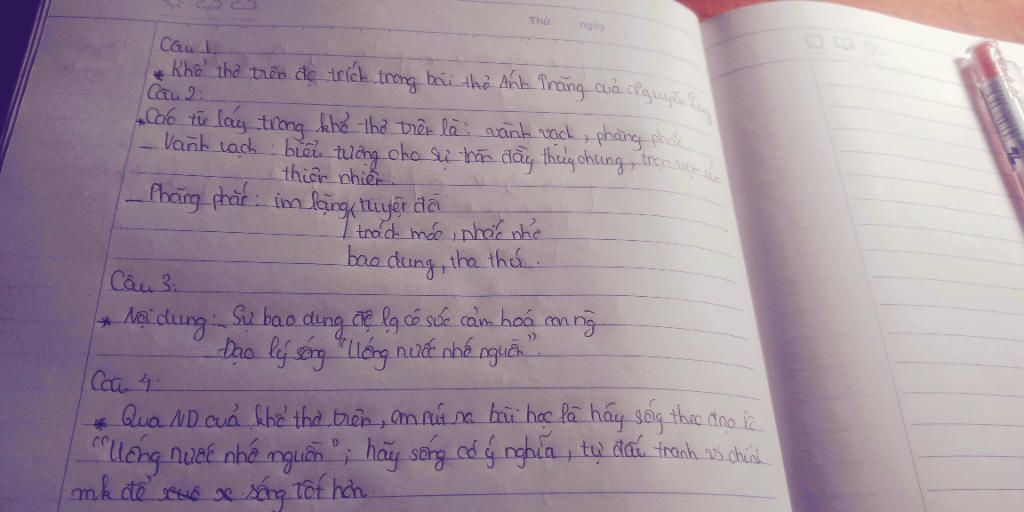 Thứ ngày
Câu 1:
* Khổ thơ trên đc trích trong bài thơ Ánh Trăng của Nguyễn Duy
Câu 2:
* Các từ láy trong khổ thơ trên là: vành vạch, phăng phắc
- Vành vạch: biểu tượng cho sự tròn đầy thủy chung, trọn vẹn của
thiên nhiên.
- Phăng phắc: im lặng tuyệt đối
trách móc, nhắc nhở
bao dung, tha thứ.
Câu 3:
* Nội dung: - Sự bao dung độ lg có sức cảm hoá con ng
Đạo lý sống "Uống nước nhớ nguồn".
Câu 4:
* Qua ND của khổ thơ trên, em rút ra bài học là hãy sống theo đạo lí
"Uống nước nhớ nguồn"; hãy sống có ý nghĩa, tự đấu tranh vs chính
mk để sống tốt hơn.